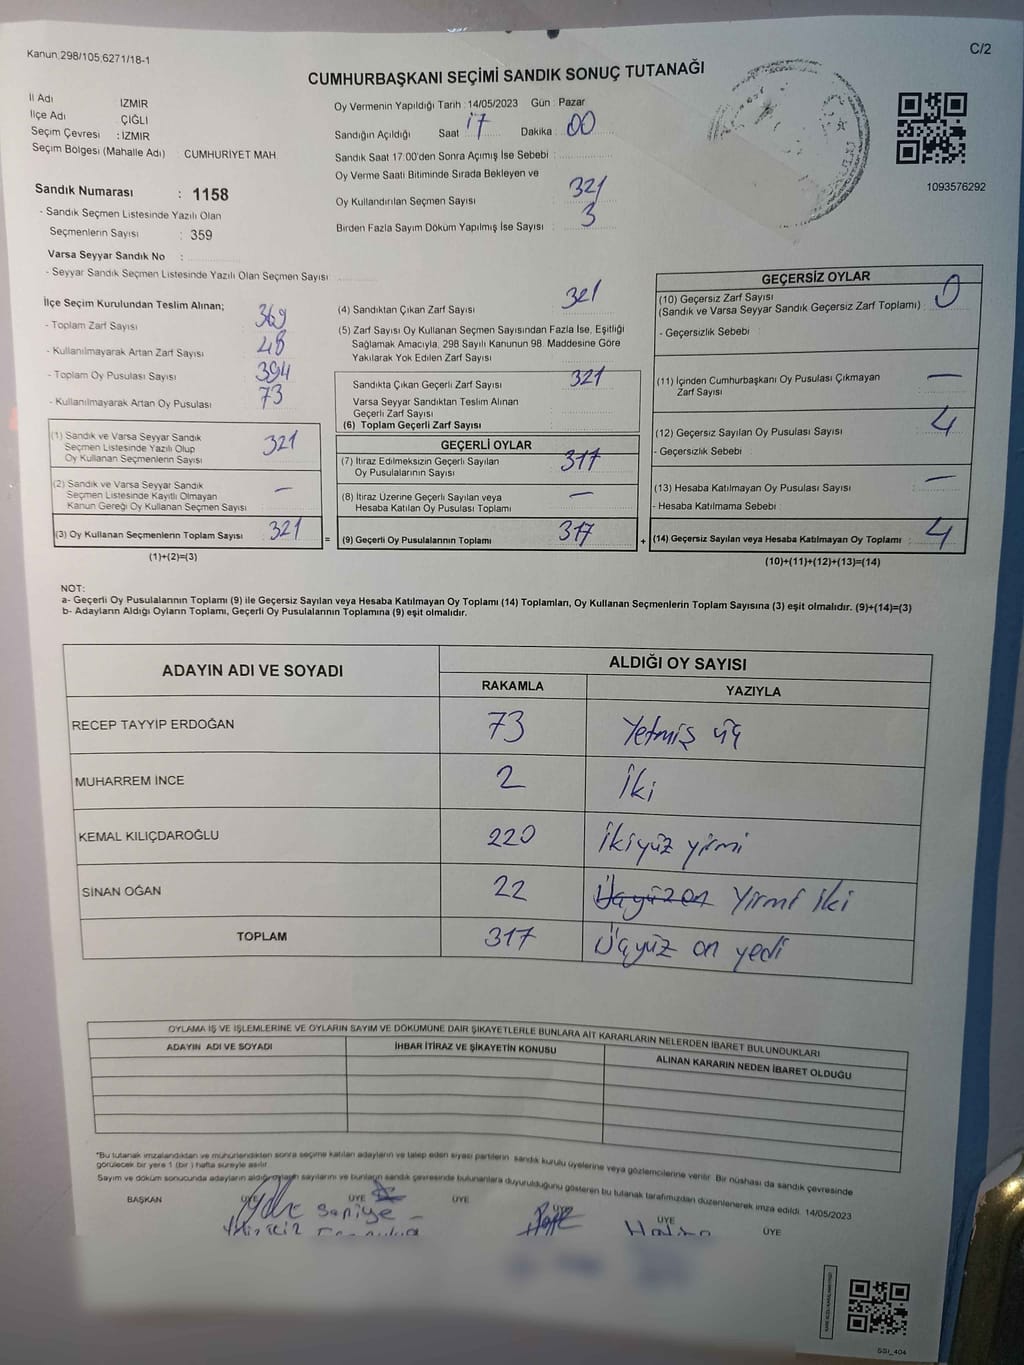 Kanun 298/105,6271/18-1
C/2
CUMHURBAŞKANI SEÇİMİ SANDIK SONUÇ TUTANAĞI
İl Adı İZMİR
İlçe Adı ÇİĞLİ
Seçim Çevresi : İZMİR
Seçim Bölgesi (Mahalle Adı) CUMHURİYET MAH
Oy Vermenin Yapıldığı Tarih : 14/05/2023 Gün : Pazar
Sandığın Açıldığı Saat 17 Dakika : 00
Sandık Saat 17:00'den Sonra Açımış İse Sebebi :
Oy Verme Saati Bitiminde Sırada Bekleyen ve
Oy Kullandırılan Seçmen Sayısı 321
Birden Fazla Sayım Döküm Yapılmış İse Sayısı : 3
1093576292
Sandık Numarası : 1158
- Sandık Seçmen Listesinde Yazılı Olan
Seçmenlerin Sayısı : 359
Varsa Seyyar Sandık No :
- Seyyar Sandık Seçmen Listesinde Yazılı Olan Seçmen Sayısı :
İlçe Seçim Kurulundan Teslim Alınan;
- Toplam Zarf Sayısı 369
- Kullanılmayarak Artan Zarf Sayısı 48
- Toplam Oy Pusulası Sayısı 394
- Kullanılmayarak Artan Oy Pusulası 73
(1) Sandık ve Varsa Seyyar Sandık
Seçmen Listesinde Yazılı Olup
Oy Kullanan Seçmenlerin Sayısı 321
(2) Sandık ve Varsa Seyyar Sandık
Seçmen Listesinde Kayıtlı Olmayan
Kanun Gereği Oy Kullanan Seçmen Sayısı : —
(3) Oy Kullanan Seçmenlerin Toplam Sayısı 321
(1)+(2)=(3)
(4) Sandıktan Çıkan Zarf Sayısı : 321
(5) Zarf Sayısı Oy Kullanan Seçmen Sayısından Fazla İse, Eşitliği
Sağlamak Amacıyla, 298 Sayılı Kanunun 98. Maddesine Göre
Yakılarak Yok Edilen Zarf Sayısı
Sandıkta Çıkan Geçerli Zarf Sayısı 321
Varsa Seyyar Sandıktan Teslim Alınan
Geçerli Zarf Sayısı
(6) Toplam Geçerli Zarf Sayısı
GEÇERLİ OYLAR
(7) İtiraz Edilmeksizin Geçerli Sayılan
Oy Pusulalarının Sayısı 317
(8) İtiraz Üzerine Geçerli Sayılan veya
Hesaba Katılan Oy Pusulası Toplamı —
= (9) Geçerli Oy Pusulalarının Toplamı 317
GEÇERSİZ OYLAR
(10) Geçersiz Zarf Sayısı
(Sandık ve Varsa Seyyar Sandık Geçersiz Zarf Toplamı) : 0
- Geçersizlik Sebebi :
(11) İçinden Cumhurbaşkanı Oy Pusulası Çıkmayan
Zarf Sayısı —
(12) Geçersiz Sayılan Oy Pusulası Sayısı 4
- Geçersizlik Sebebi
(13) Hesaba Katılmayan Oy Pusulası Sayısı —
- Hesaba Katılmama Sebebi
+ (14) Geçersiz Sayılan veya Hesaba Katılmayan Oy Toplamı : 4
(10)+(11)+(12)+(13)=(14)
NOT:
a- Geçerli Oy Pusulalarının Toplamı (9) ile Geçersiz Sayılan veya Hesaba Katılmayan Oy Toplamı (14) Toplamları, Oy Kullanan Seçmenlerin Toplam Sayısına (3) eşit olmalıdır. (9)+(14)=(3)
b- Adayların Aldığı Oyların Toplamı, Geçerli Oy Pusulalarının Toplamına (9) eşit olmalıdır.
ADAYIN ADI VE SOYADI ALDIĞI OY SAYISI
RAKAMLA YAZIYLA
RECEP TAYYIP ERDOĞAN 73 Yetmiş üç
MUHARREM İNCE 2 İki
KEMAL KILIÇDAROĞLU 220 İkiyüz yirmi
SİNAN OĞAN 22 Yirmi iki
TOPLAM 317 Üçyüz on yedi
OYLAMA İŞ VE İŞLEMLERİNE VE OYLARIN SAYIM VE DÖKÜMÜNE DAİR ŞİKAYETLERLE BUNLARA AİT KARARLARIN NELERDEN İBARET BULUNDUKLARI
ADAYIN ADI VE SOYADI İHBAR İTİRAZ VE ŞİKAYETİN KONUSU ALINAN KARARIN NEDEN İBARET OLDUĞU
*Bu tutanak imzalandıktan ve mühürlendikten sonra seçime katılan adayların ve talep eden siyasi partilerin sandık kurulu üyelerine veya gözlemcilerine verilir. Bir nüshası da sandık çevresinde
görülecek bir yere 1 (bir ) hafta süreyle asılır.
Sayım ve döküm sonucunda adayların aldığı oyların sayılarını ve bunların sandık çevresinde bulunanlara duyurulduğunu gösteren bu tutanak tarafımızdan düzenlenerek imza edildi. 14/05/2023
BAŞKAN ÜYE ÜYE ÜYE ÜYE ÜYE ÜYE
Saniye